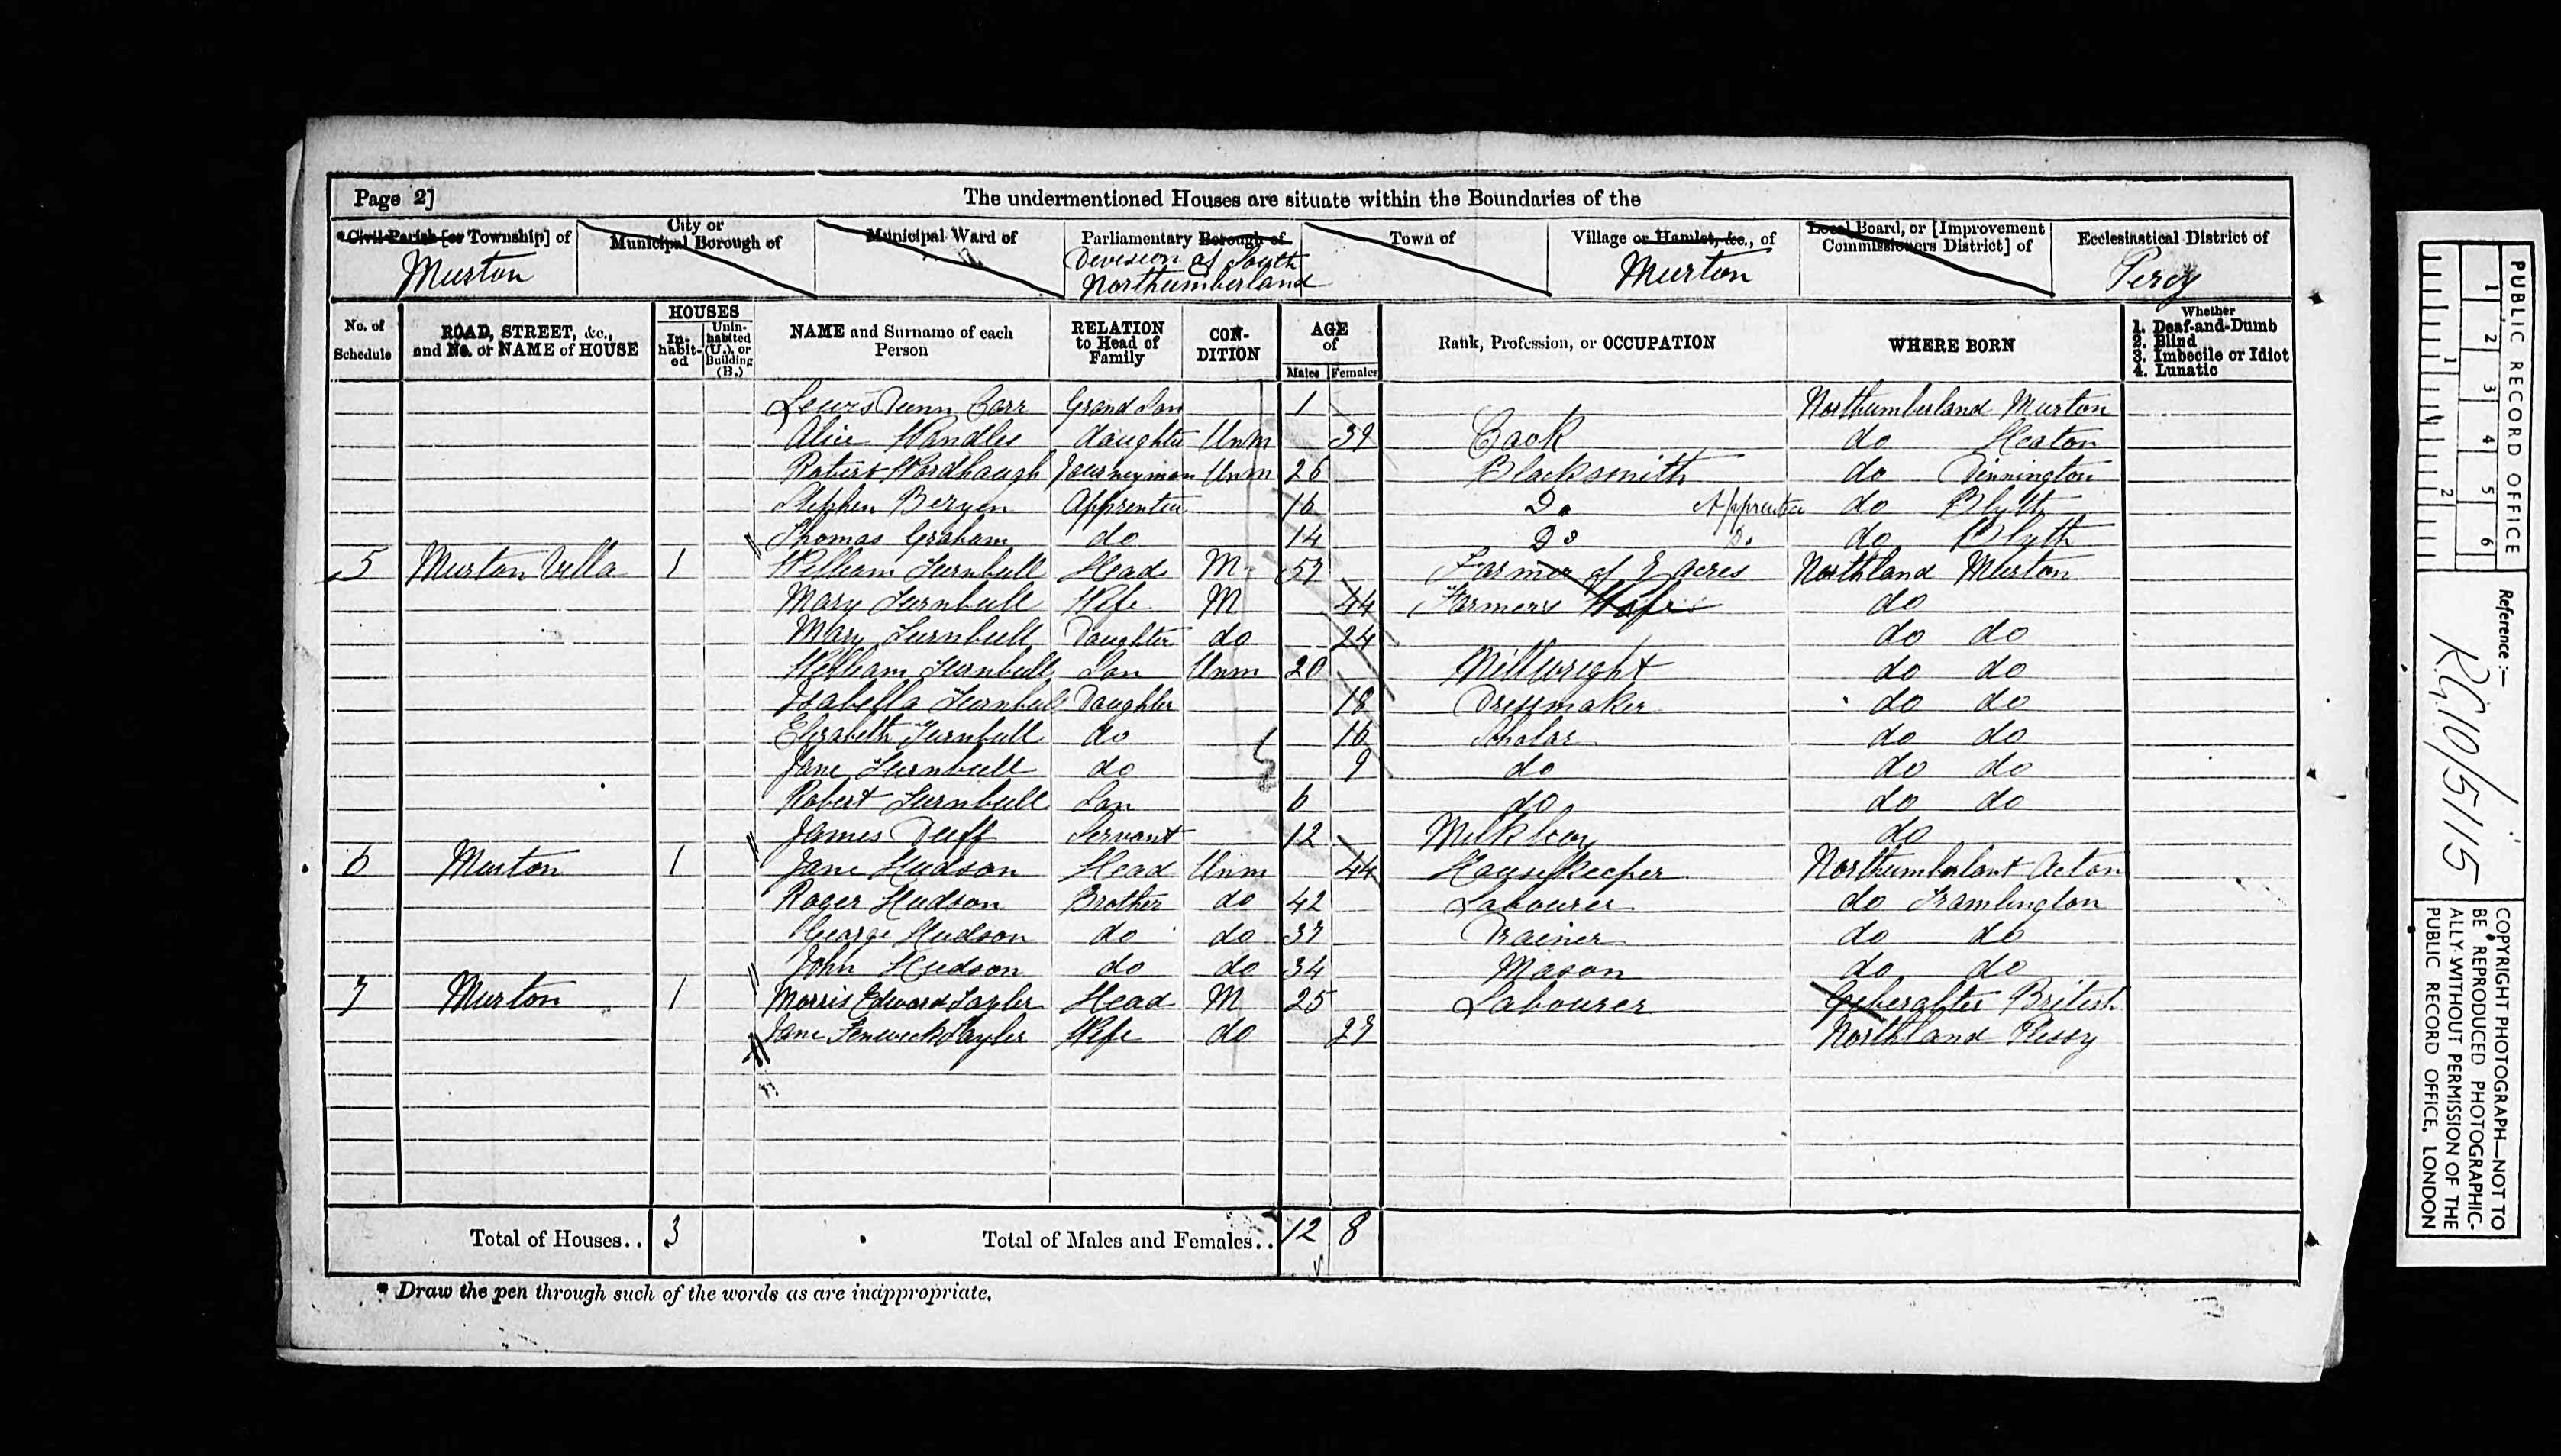 Page 2]
The undermentioned Houses are situate within the Boundaries of the
* Civil Parish [or Township] of
City or Municipal Borough of
Municipal Ward of
Parliamentary Borough of
Town of
Village or Hamlet, &c., of
Local Board, or [Improvement Commissioners District] of
Ecclesiastical District of
Murton
Division of South Northumberland
Murton
Percy
No. of Schedule
ROAD, STREET, &c., and No. or NAME of HOUSE
HOUSES
In-habit-ed
Unin-habited (U.), or Building (B.)
NAME and Surname of each Person
RELATION to Head of Family
CON-DITION
AGE of
Males Females
Rank, Profession, or OCCUPATION
WHERE BORN
Whether
1. Deaf-and-Dumb
2. Blind
3. Imbecile or Idiot
4. Lunatic
Lewis Dunn Carr Grand Son 1 Northumberland Murton
Alice Wandles daughter Unm 39 Cook do Heaton
Robert Wardhaugh Journeyman Unm 26 Blacksmith do Dinnington
Stephen Bergen Apprentice 16 Do Apprentice do Blyth
Thomas Graham do 14 Do Do do Blyth
5 Murton Villa 1 William Turnbull Head M 57 Farmer of acres Northland Murton
Mary Turnbull Wife M 44 Farmers Wife do
Mary Turnbull Daughter do 24 do do
William Turnbull Son Unm 20 Millwright do do
Isabella Turnbull Daughter 18 Dressmaker do do
Elizabeth Turnbull do 16 Scholar do do
Jane Turnbull do 9 do do do
Robert Turnbull Son 6 do do do
James Duff Servant 12 Milk boy do
6 Murton 1 Jane Hudson Head Unm 44 Housekeeper Northumberland Acton
Roger Hudson Brother do 42 Labourer do Framlington
George Hudson do do 37 Drainer do do
John Hudson do do 34 Mason do do
7 Murton 1 Morris Edward Tayler Head M 25 Labourer British
Jane Fenwick Tayler Wife do 27 Northland
Total of Houses.. 3
Total of Males and Females.. 12 8
* Draw the pen through such of the words as are inappropriate.
PUBLIC RECORD OFFICE
1 2 3 4 5 6
1 2
Reference :-
RG10/5115
COPYRIGHT PHOTOGRAPH—NOT TO
BE REPRODUCED PHOTOGRAPHIC-
ALLY WITHOUT PERMISSION OF THE
PUBLIC RECORD OFFICE, LONDON